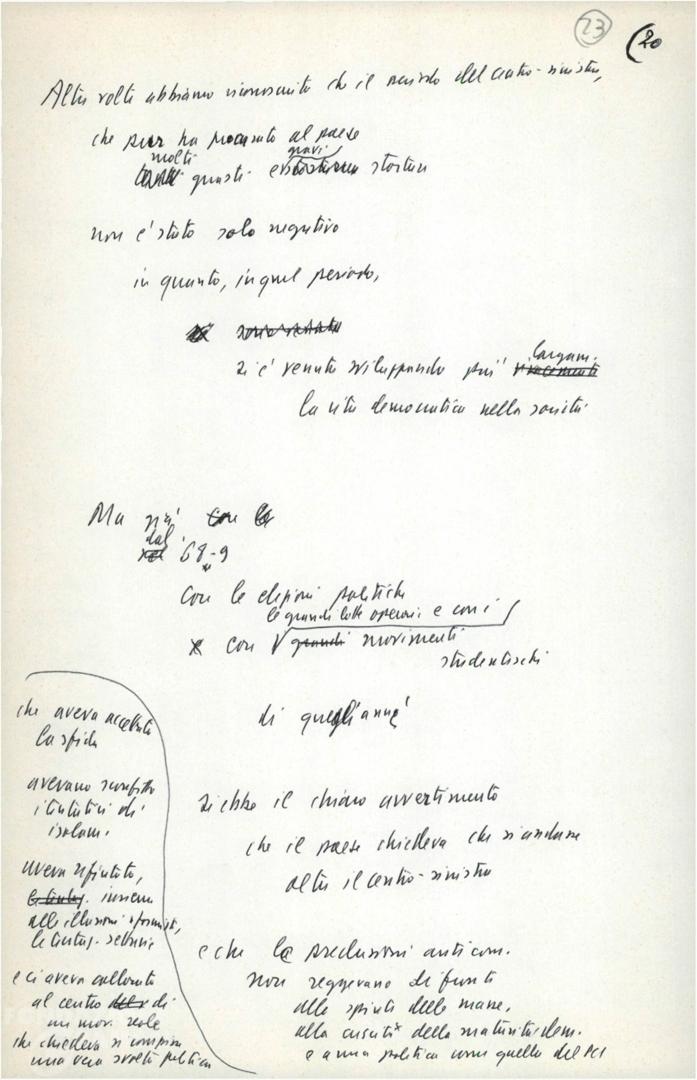 23 (20
Altre volte abbiamo riconosciuto che il periodo del centro-sinistra,
che pur ha procurato al paese
molti gravi
guasti e storture
non è stato solo negativo
in quanto, in quel periodo,
si è venuta sviluppando più largam.
vivacemente
la vita democratica nella società
Ma già con le
dal
nel 68-9
con le elezioni politiche
le grandi lotte operaie e con i
con grandi movimenti
studenteschi
di quegli anni
si ebbe il chiaro avvertimento
che il paese chiedeva che si andasse
oltre il centro-sinistra
e che le preclusioni anticom.
non reggevano di fronte
alle spinte delle masse,
alla crescita della maturità dem.
e a una politica come quella del PCI
che aveva accettato
la sfida
avevano sconfitto
i tentativi di
isolam.
aveva rifiutato,
insieme
alle illusioni riformiste,
le tentaz. settarie
e ci aveva collocato
al centro di
un mov. reale
che chiedeva si compisse
una vera svolta politica